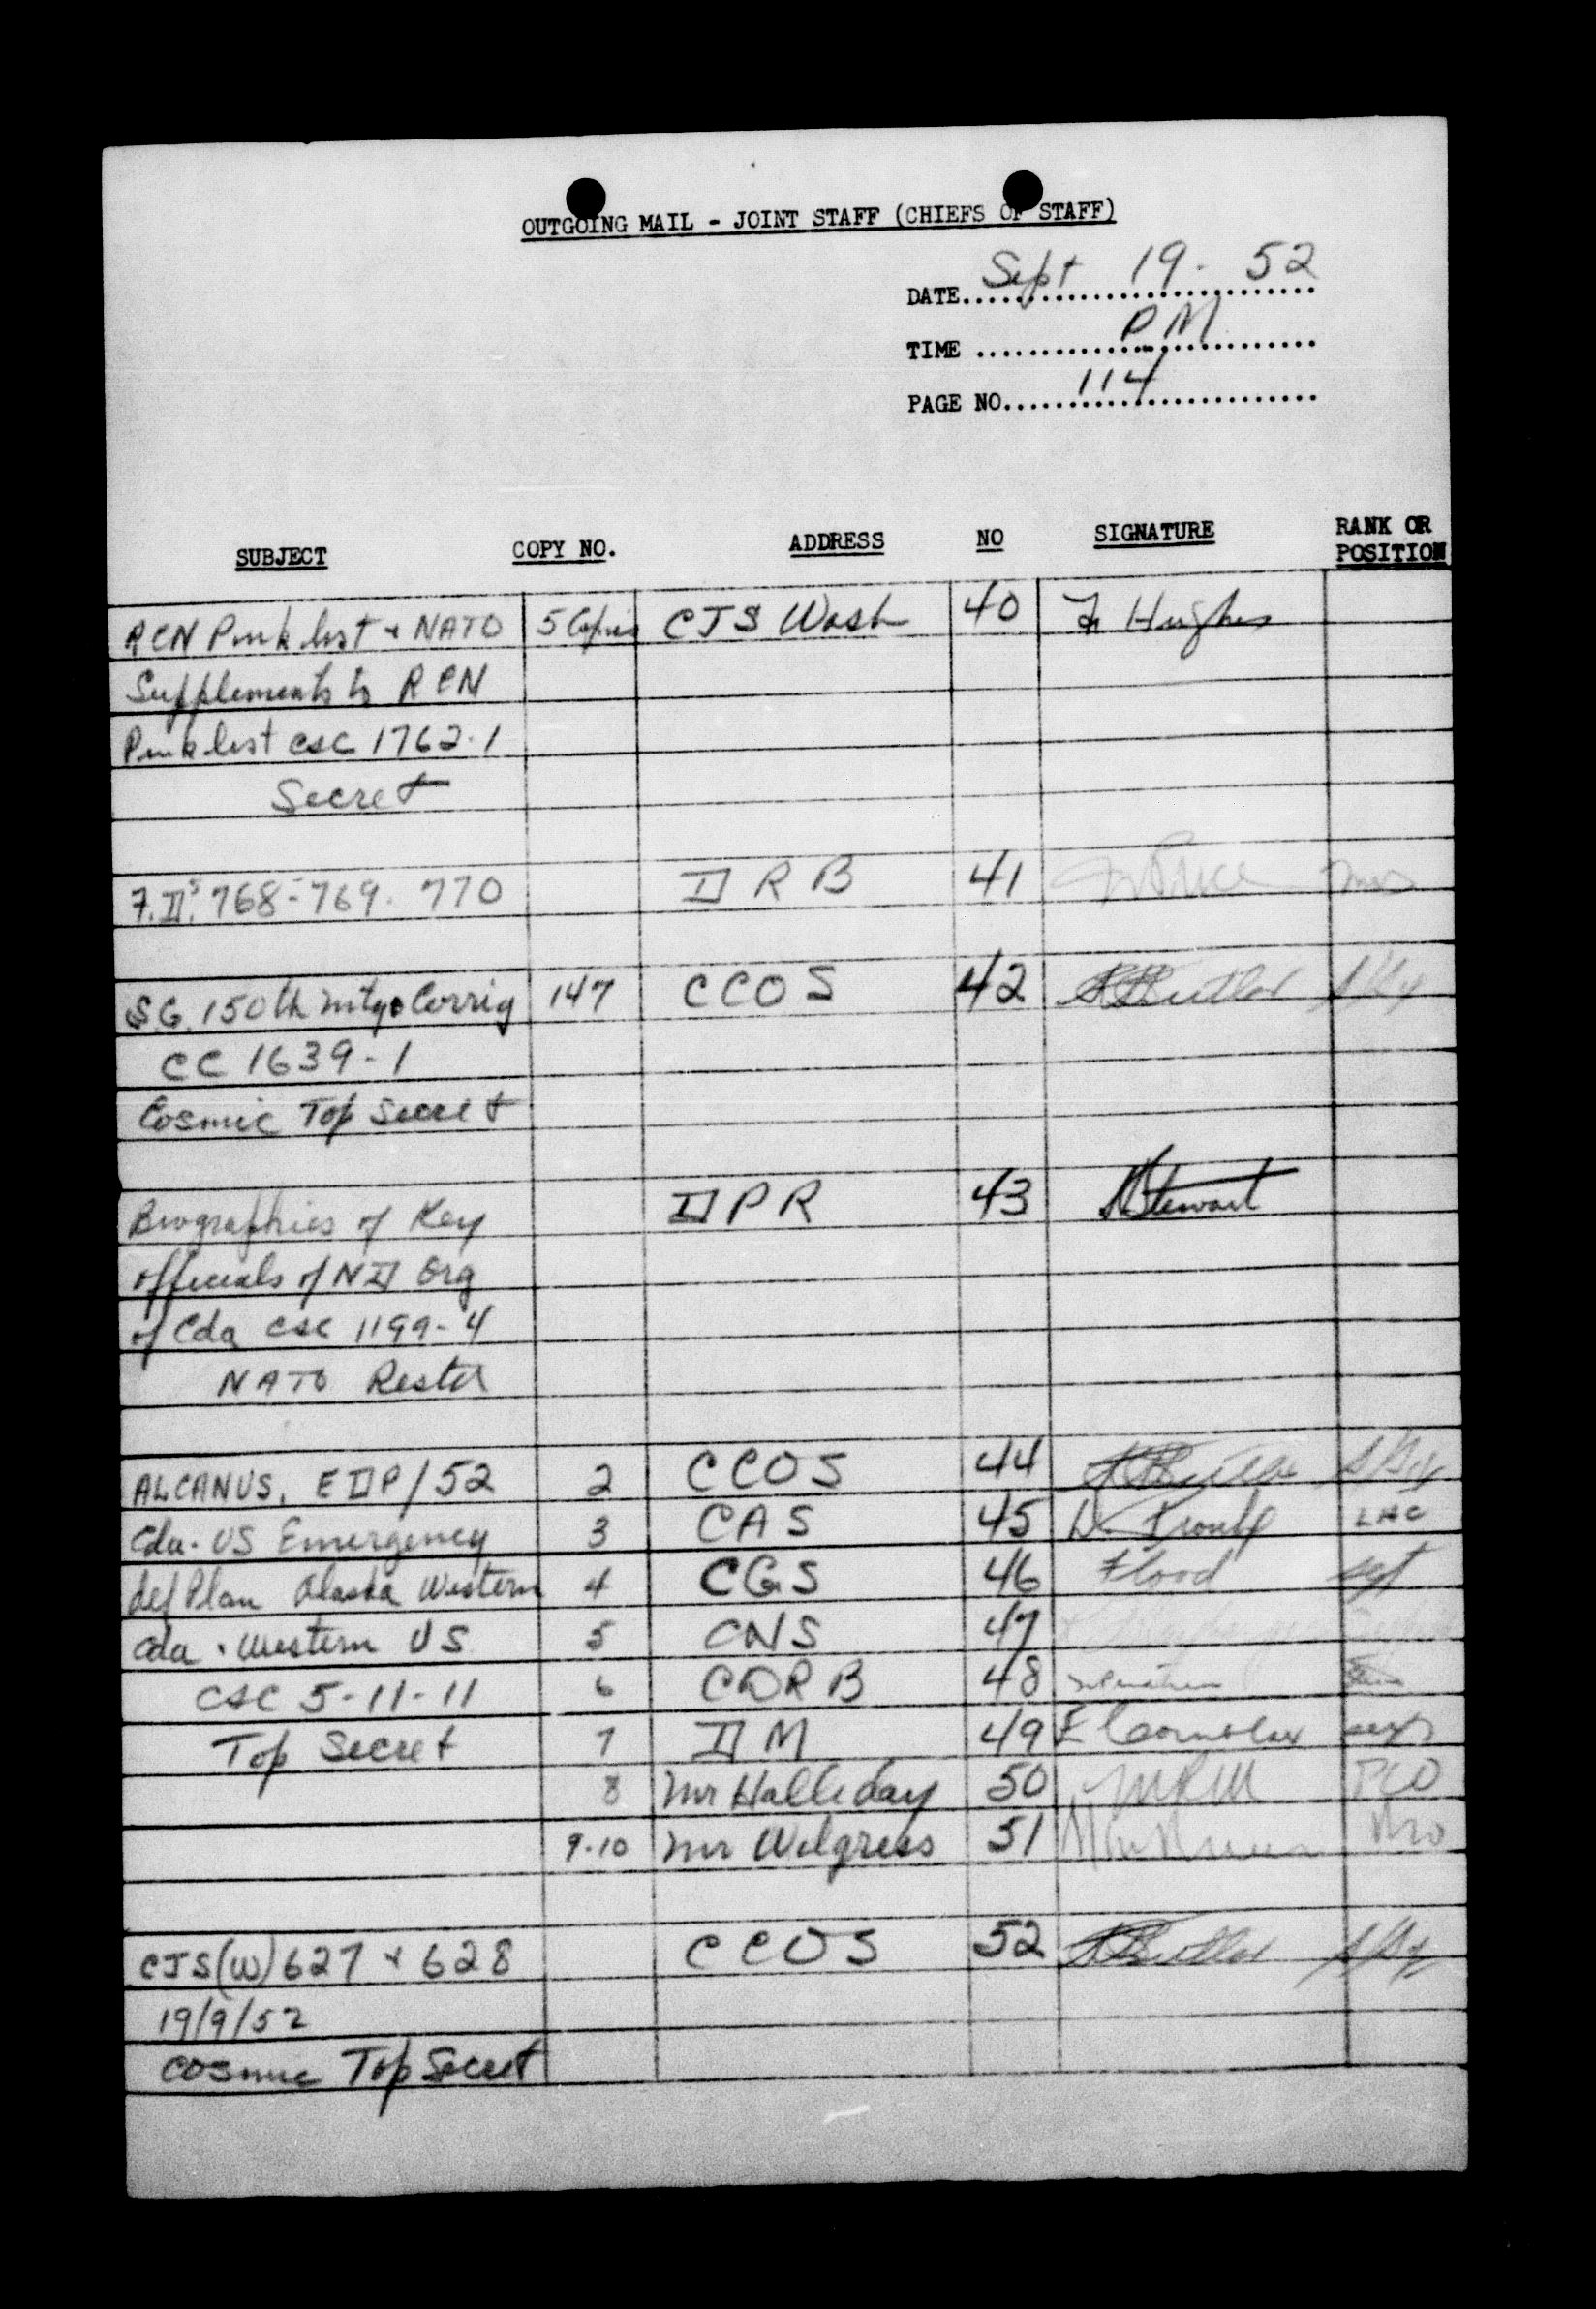 OUTGOING MAIL - JOINT STAFF (CHIEFS OF STAFF)
DATE Sept 19. 52
TIME PM
PAGE NO. 114
SUBJECT COPY NO. ADDRESS NO SIGNATURE RANK OR POSITION
RCN Pink list + NATO 5 Copies CJS Wash 40 Hughes
Supplements to RCN
Pink list CSC 1762-1
Secret
768-769. 770 DRB 41
S.G. 150th mtg Corrig 147 CCOS 42 Butler
CC 1639-1
Cosmic Top Secret
Biographies of Key DPR 43 Stewart
officials of ND Org
of Cda CSC 1199-4
NATO Restd
ALCANUS. EDP/52 2 CCOS 44
Cda. US Emergency 3 CAS 45 LAC
def Plan Alaska Western 4 CGS 46 Flood sgt
Cda . Western US 5 CNS 47
CSC 5-11-11 6 CDRB 48
Top Secret 7 DM 49
8 Mr Halliday 50
9-10 Mr Wilgress 51
CJS(W) 627 + 628 CCOS 52 Butler
19/9/52
Cosmic Top Secret